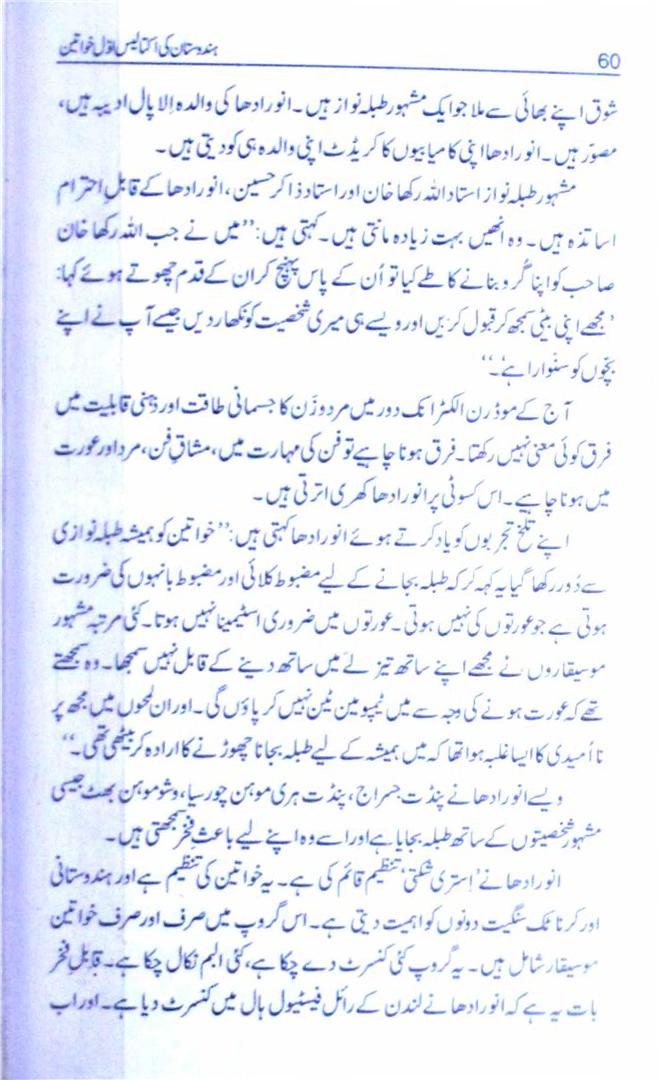 60
ہندوستان کی اکتالیس اوّل خواتین
شوق اپنے بھائی سے ملا جو ایک مشہور طبلہ نواز ہیں۔ انورادھا کی والدہ اِلا پال ادیبہ ہیں،
مصوّر ہیں۔ انورادھا اپنی کامیابیوں کا کریڈٹ اپنی والدہ ہی کو دیتی ہیں۔
مشہور طبلہ نواز استاد اللہ رکھا خان اور استاد ذاکر حسین، انورادھا کے قابلِ احترام
اساتذہ ہیں۔ وہ انھیں بہت زیادہ مانتی ہیں۔ کہتی ہیں: ’’میں نے جب اللہ رکھا خان
صاحب کو اپنا گُرو بنانے کا طے کیا تو اُن کے پاس پہنچ کر ان کے قدم چھوتے ہوئے کہا:
’مجھے اپنی بیٹی سمجھ کر قبول کریں اور ویسے ہی میری شخصیت کو نکھار دیں جیسے آپ نے اپنے
بچّوں کو سنْوارا ہے‘۔‘‘
آج کے موڈرن الکٹرانک دور میں مرد و زَن کا جسمانی طاقت اور ذہنی قابلیت میں
فرق کوئی معنیٰ نہیں رکھتا۔ فرق ہونا چاہیے تو فن کی مہارت میں، مشاقِ فن، مرد اور عورت
میں ہونا چاہیے۔ اس کسوٹی پر انورادھا کھری اترتی ہیں۔
اپنے تلخ تجربوں کو یاد کرتے ہوئے انورادھا کہتی ہیں: ’’خواتین کو ہمیشہ طبلہ نوازی
سے دُور رکھا گیا یہ کہہ کر کہ طبلہ بجانے کے لیے مضبوط کلائی اور مضبوط بانہوں کی ضرورت
ہوتی ہے جو عورتوں کی نہیں ہوتی۔ عورتوں میں ضروری اسٹیمینا نہیں ہوتا۔ کئی مرتبہ مشہور
موسیقاروں نے مجھے اپنے ساتھ تیز لَے میں ساتھ دینے کے قابل نہیں سمجھا۔ وہ سمجھتے
تھے کہ عورت ہونے کی وجہ سے میں ٹیمپو مین ٹین نہیں کر پاؤں گی۔ اور ان لمحوں میں مجھ پر
نا اُمیدی کا ایسا غلبہ ہوا تھا کہ میں ہمیشہ کے لیے طبلہ بجانا چھوڑنے کا ارادہ کر بیٹھی تھی۔‘‘
ویسے انورادھا نے پنڈت جسراج، پنڈت ہری موہن چورسیا، وشو موہن بھٹ جیسی
مشہور شخصیتوں کے ساتھ طبلہ بجایا ہے اور اسے وہ اپنے لیے باعثِ فخر سمجھتی ہیں۔
انورادھا نے ’اِستری شکتی‘ تنظیم قائم کی ہے۔ یہ خواتین کی تنظیم ہے اور ہندوستانی
اور کرناٹک سنگیت دونوں کو اہمیت دیتی ہے۔ اس گروپ میں صرف اور صرف خواتین
موسیقار شامل ہیں۔ یہ گروپ کئی کنسرٹ دے چکا ہے، کئی البم نکال چکا ہے۔ قابلِ فخر
بات یہ ہے کہ انورادھا نے لندن کے رائل فیسٹیول ہال میں کنسرٹ دیا ہے۔ اور اب